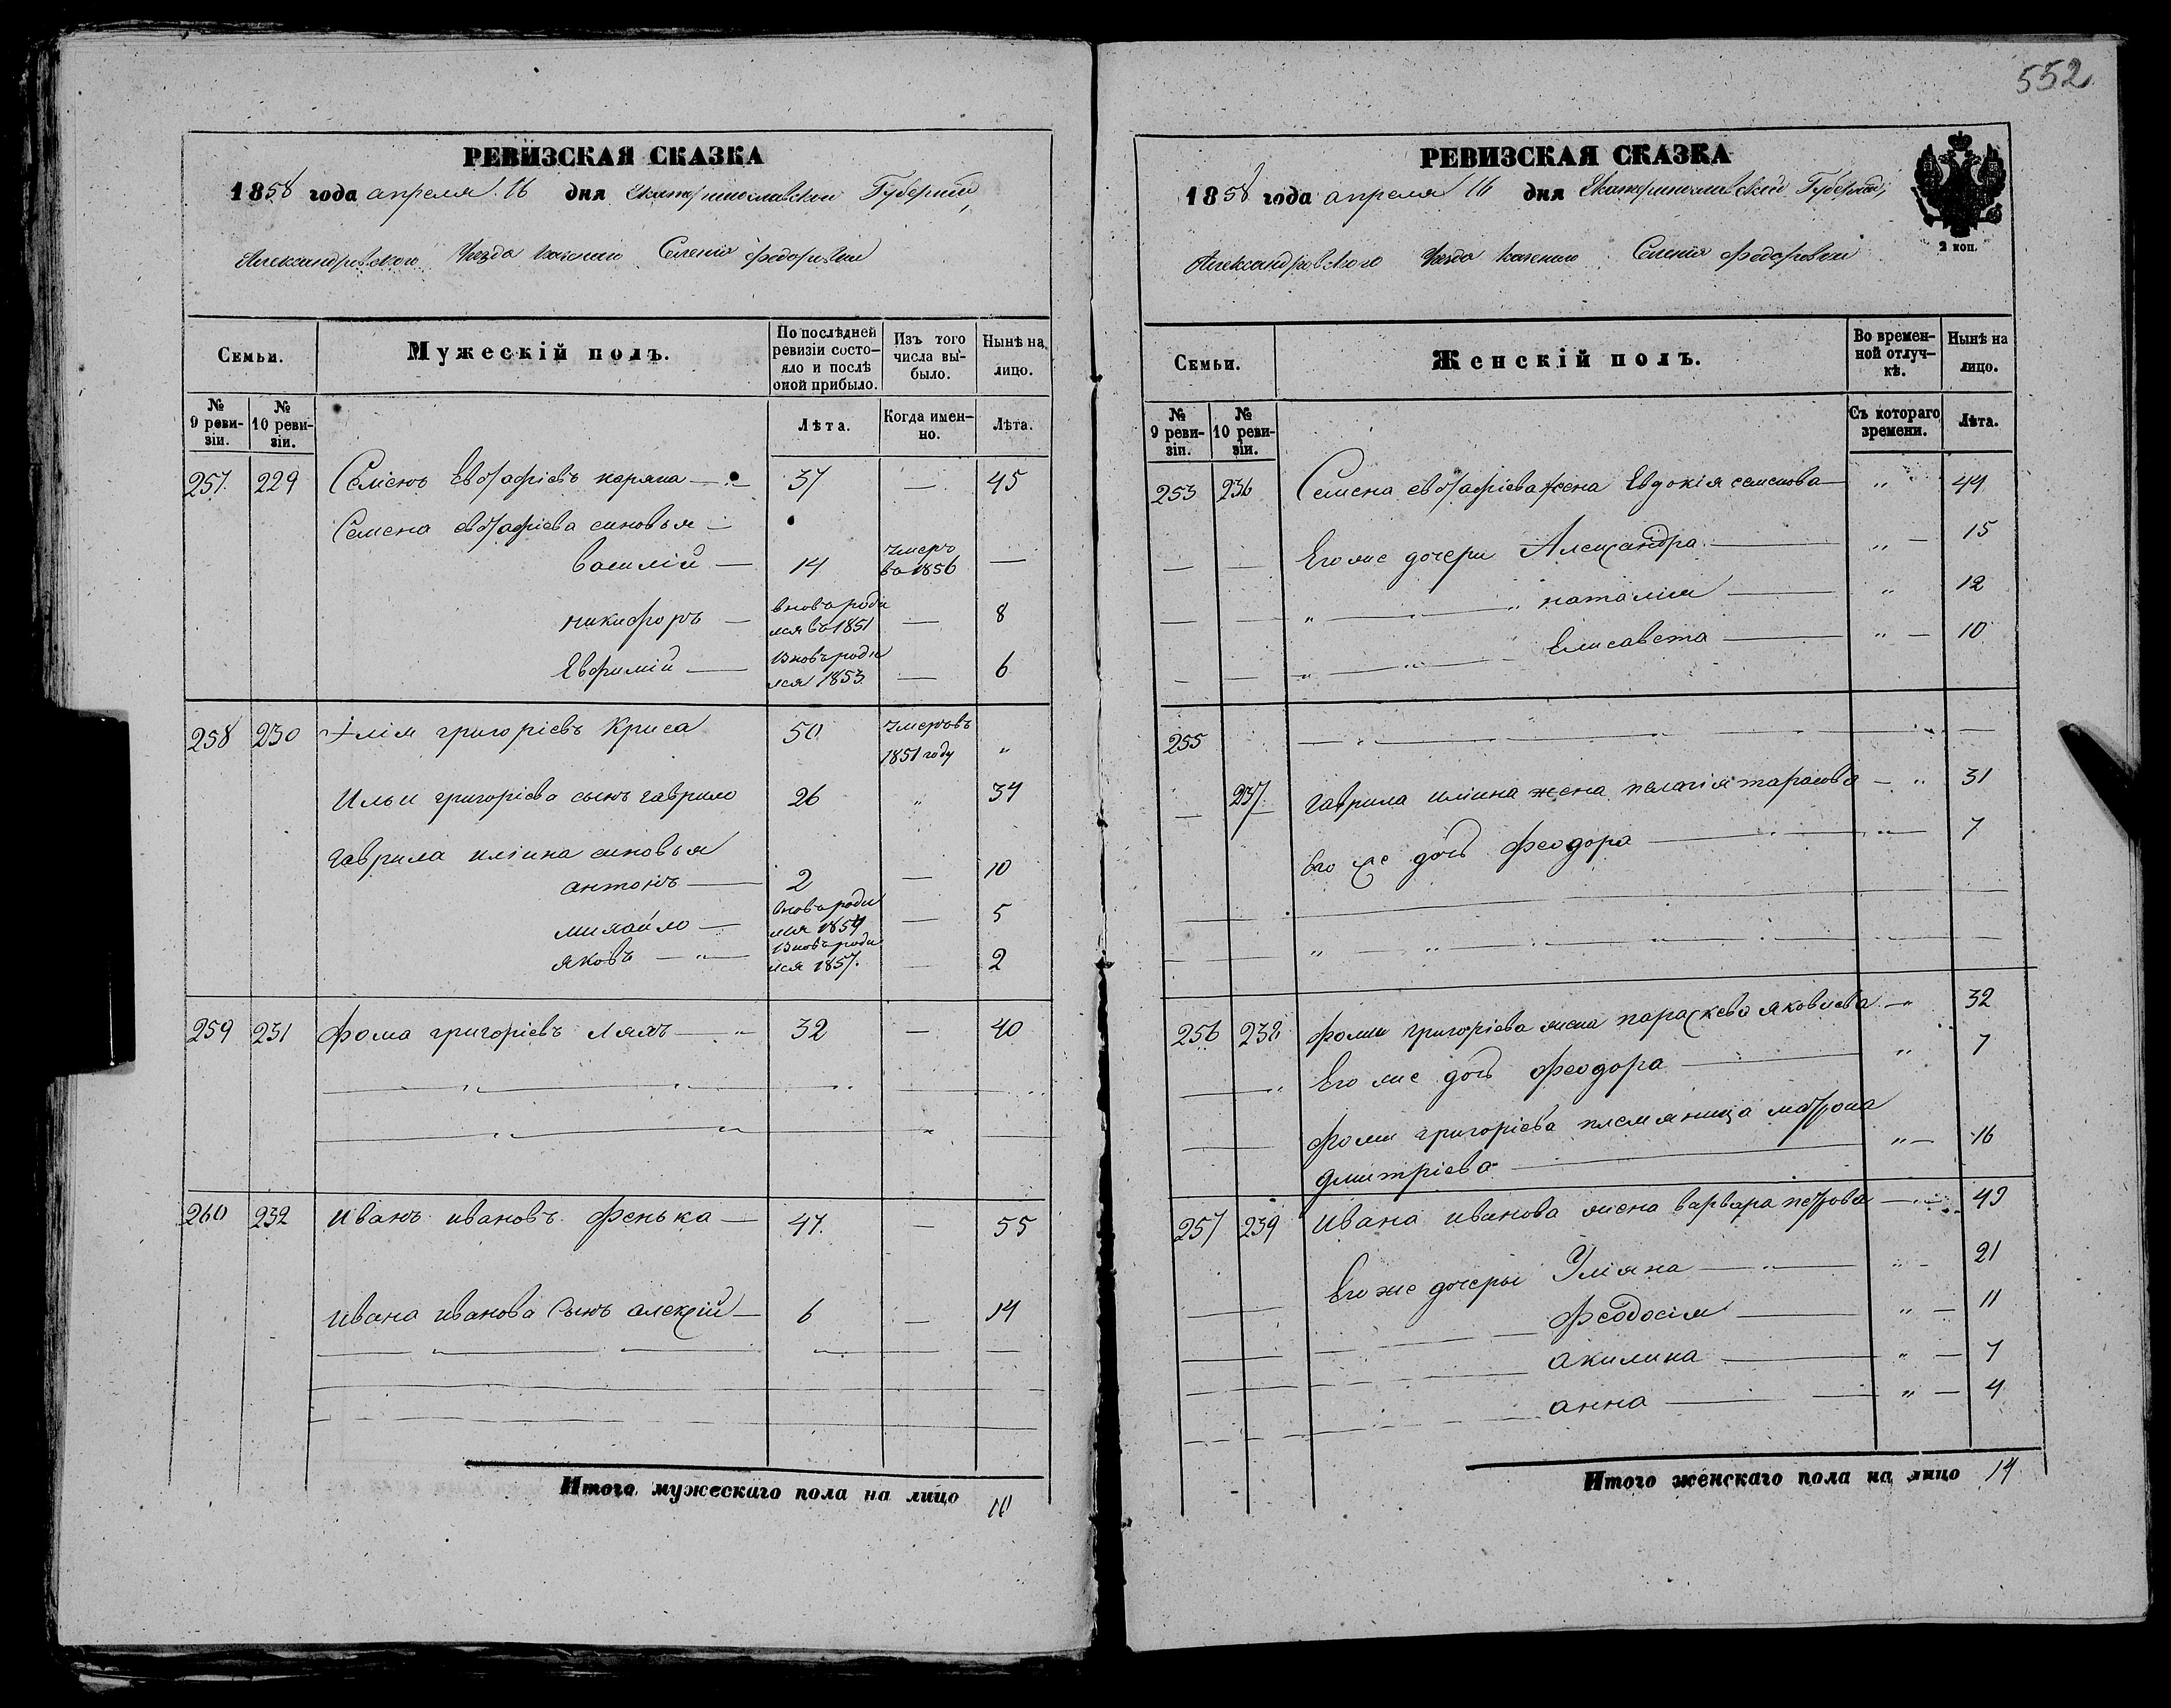 552
РЕВИЗСКАЯ СКАЗКА
1858 года апреля 16 дня Екатеринославской Губерніи,
Александровского Уезда казенного Селенія Федоровки
Семьи. Мужескій полъ. По послѣдней ревизіи состояло и послѣ оной прибыло. Изъ того числа выбыло. Нынѣ на лицо.
№ 9 ревизіи. № 10 ревизіи. Лѣта. Когда именно. Лѣта.
257. 229 Семенъ Евстафіевъ — 37 — 45
Семена евстафіева синовья —
василій — 14 Умеръ въ 1856 —
никифоръ — вновь родился въ 1851 — 8
Евфимій — Вновь родился 1853. — 6
258 230 Григоріевъ Криса 50 Умеръ въ 1851 году "
Ильи григоріева сынъ гаврило 26 " 34
гаврила иліина синовья
антонъ — 2 — 10
михайло — вновь родился 1854 — 5
яковъ — " — Вновь родился 1857. — 2
259 231 фома григоріевъ Ляхъ — " 32 — 40
260 232 иванъ ивановъ фенька — 47. — 55
ивана иванова Сынъ алексій — 6 — 14
Итого мужескаго пола на лицо 10
РЕВИЗСКАЯ СКАЗКА
1858 года апреля 16 дня Екатеринославской Губерніи,
Александровского Уезда казенного Селенія Федоровки
2 коп.
Семьи. Женскій полъ. Во временной отлучкѣ. Нынѣ на лицо.
№ 9 ревизіи. № 10 ревизіи. Съ котораго времени. Лѣта.
253 236 Семена евстафіева жена Евдокія семенова — " 44
— — Его же дочери Александра — " — 15
— — " — " наталия — " 12
— — " — " — Елисавета — " — 10
255 — " — " — " — " —
— 237. гаврила иліина жена пелагія тарасова — " 31
Его же дочь феодора — " — 7
256 238 фоми григоріева жена параскева яковлева — " 32
— " Его же дочь феодора — " 7
— фоми григоріева племяница матрона
дмитріева — " — 16
257 239 ивана иванова жена варвара петрова — " — 49
Его же дочеры Уліяна — " — " — 21
— — феодосія — " — 11
— — акилина — " — 7
— — анна — " — 4
Итого женскаго пола на лицо 14